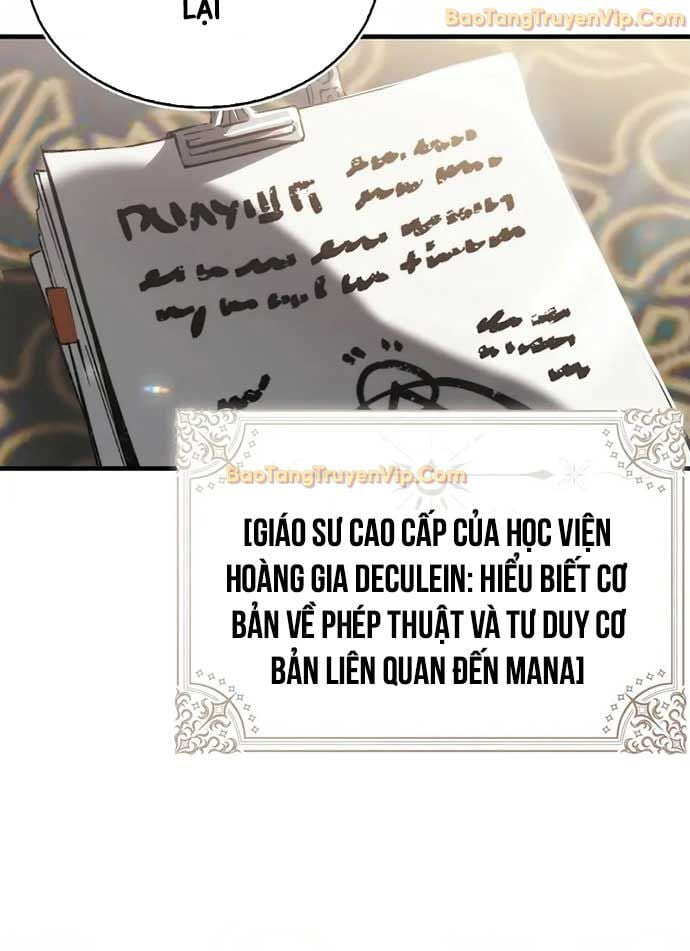 LẠI
BaoTangTruyenVip.Com
BaoTangTruyenVip.Com
[GIÁO SƯ CAO CẤP CỦA HỌC VIỆN
HOÀNG GIA DECULEIN: HIỂU BIẾT CƠ
BẢN VỀ PHÉP THUẬT VÀ TƯ DUY CƠ
BẢN LIÊN QUAN ĐẾN MANA]
BaoTangTruyenVip.Com